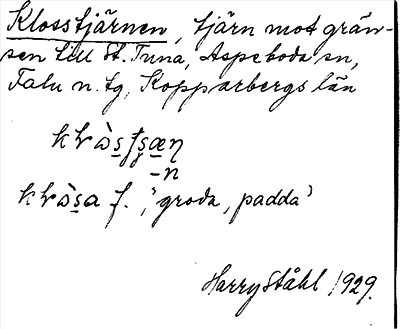 Klosstjärnen, tjärn mot grän-
sen till St. Tuna, Aspeboda sn,
Falu n. tg, Kopparbergs län
-n
f. 'groda, padda'
Harry Ståhl 1929.